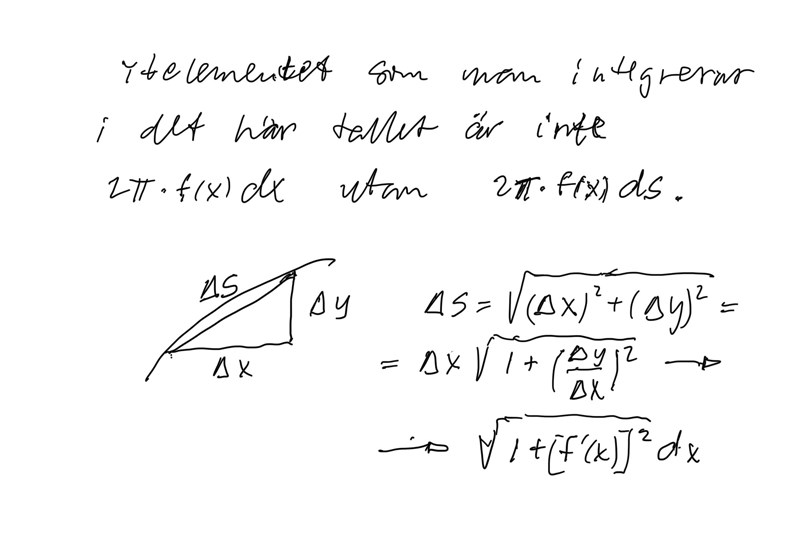 Ytelementet som man integrerar
i det här tallet är inte
2π·f(x)dx utan 2π·f(x)ds.
ΔS
Δy
Δx
ΔS = √((Δx)² + (Δy)²) =
= Δx √(1 + (Δy/Δx)²) →
→ √(1 + [f'(x)]²) dx